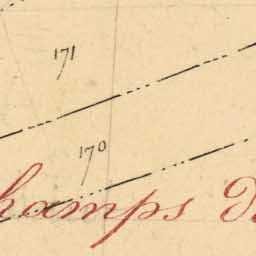 171
170
hamps d